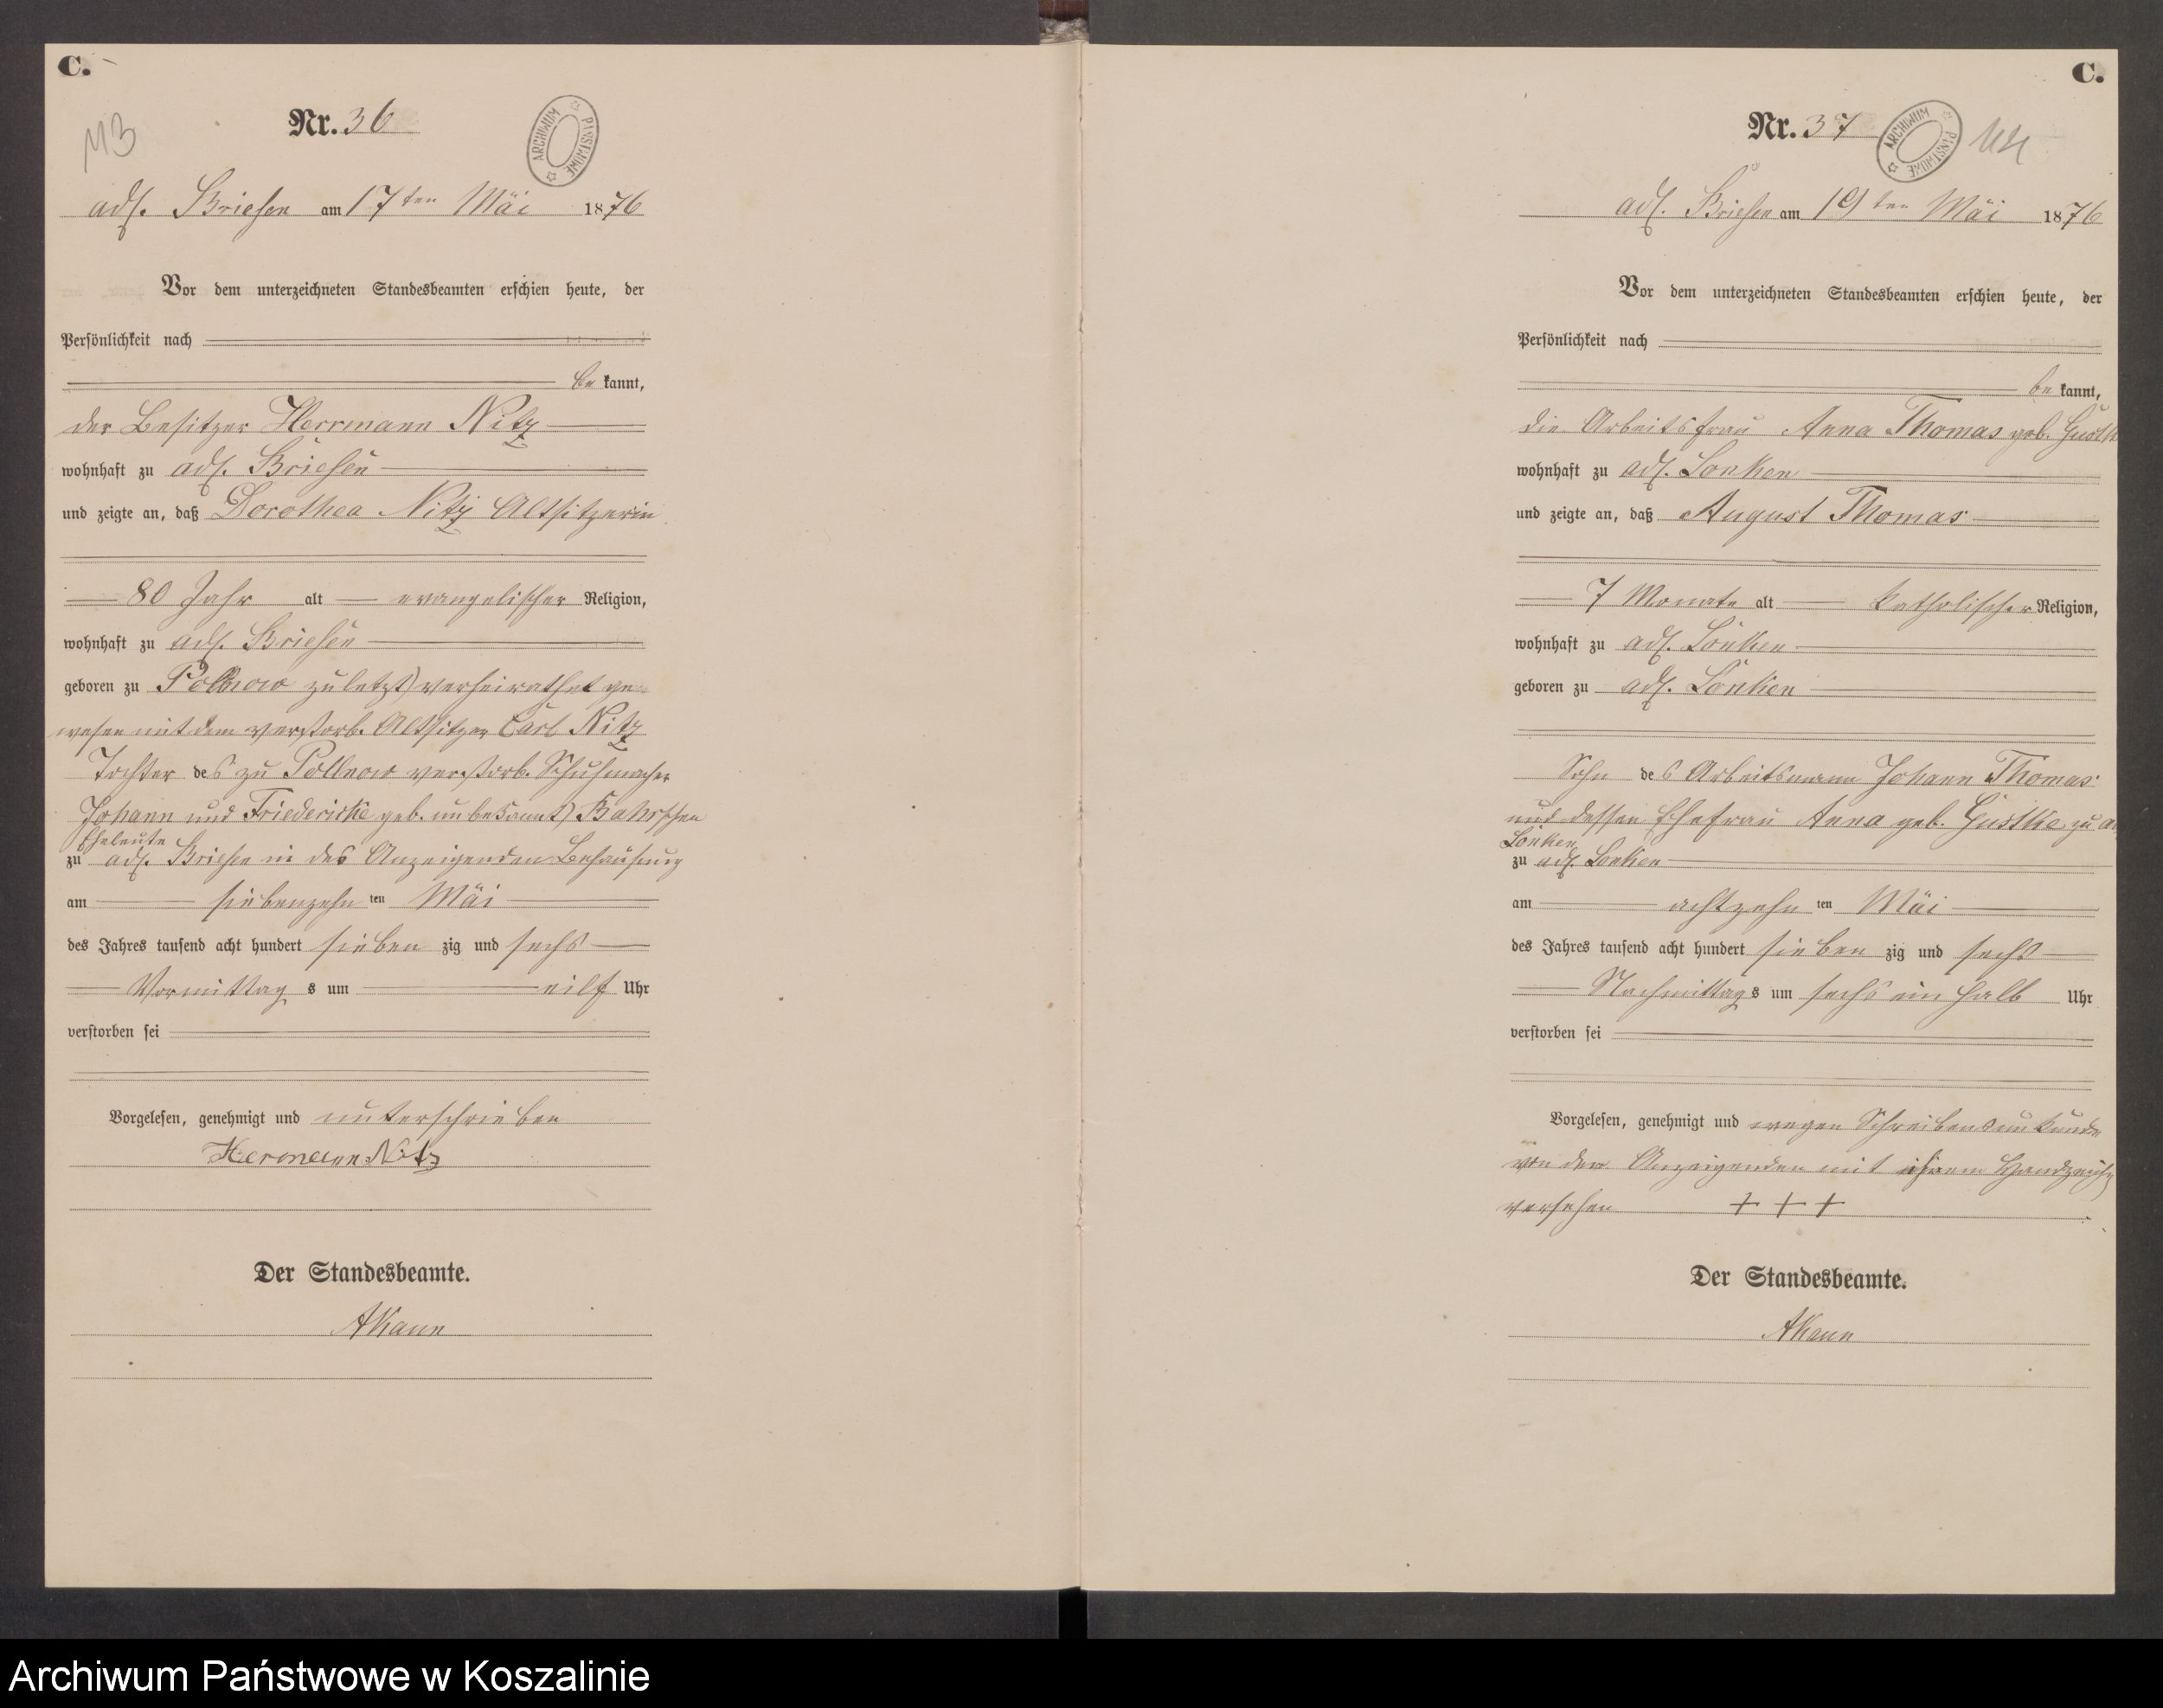 C.
Nr. 36
113
ARCHIWUM PAŃSTWOWE
adl. Briesen am 17ten Mai 1876
Vor dem unterzeichneten Standesbeamten erschien heute, der
Persönlichkeit nach
be kannt,
der Besitzer Herrmann Nitz
wohnhaft zu adl. Briesen
und zeigte an, daß Dorothea Nitz Altsitzerin
80 Jahr alt evangelischer Religion,
wohnhaft zu adl. Briesen
geboren zu Pollnow zuletzt verheirathet ge-
wesen mit dem verstorb. Altsitzer Carl Nitz
Tochter des zu Pollnow verstorb. Schuhmacher
Johann und Friedericke geb. unbekannt)
Eheleute
zu adl. Briesen in des Anzeigenden Behausung
am siebenzehn ten Mai
des Jahres tausend acht hundert sieben zig und sechs
Vormittag s um eilf Uhr
verstorben sei
Vorgelesen, genehmigt und unterschrieben
Hermann Nitz
Der Standesbeamte.
AKaun
C.
Nr. 37
ARCHIWUM PAŃSTWOWE
adl. Briesen am 19ten Mai 1876
Vor dem unterzeichneten Standesbeamten erschien heute, der
Persönlichkeit nach
be kannt,
die Arbeitsfrau Anna Thomas geb. Gustk
wohnhaft zu adl. Lonken
und zeigte an, daß August Thomas
7 Monate alt katholischer Religion,
wohnhaft zu adl. Lonken
geboren zu adl. Lonken
Sohn des Arbeitsmann Johann Thomas
und dessen Ehefrau Anna geb. Gustke zu a
Lonken
zu adl. Lonken
am achtzehn ten Mai
des Jahres tausend acht hundert sieben zig und sechs
Nachmittag s um sechs ein halb Uhr
verstorben sei
Vorgelesen, genehmigt und wegen Schreibensunkunde
von der Anzeigenden mit ihrem Handzeichn
versehen + + +
Der Standesbeamte.
AKaun
Archiwum Państwowe w Koszalinie